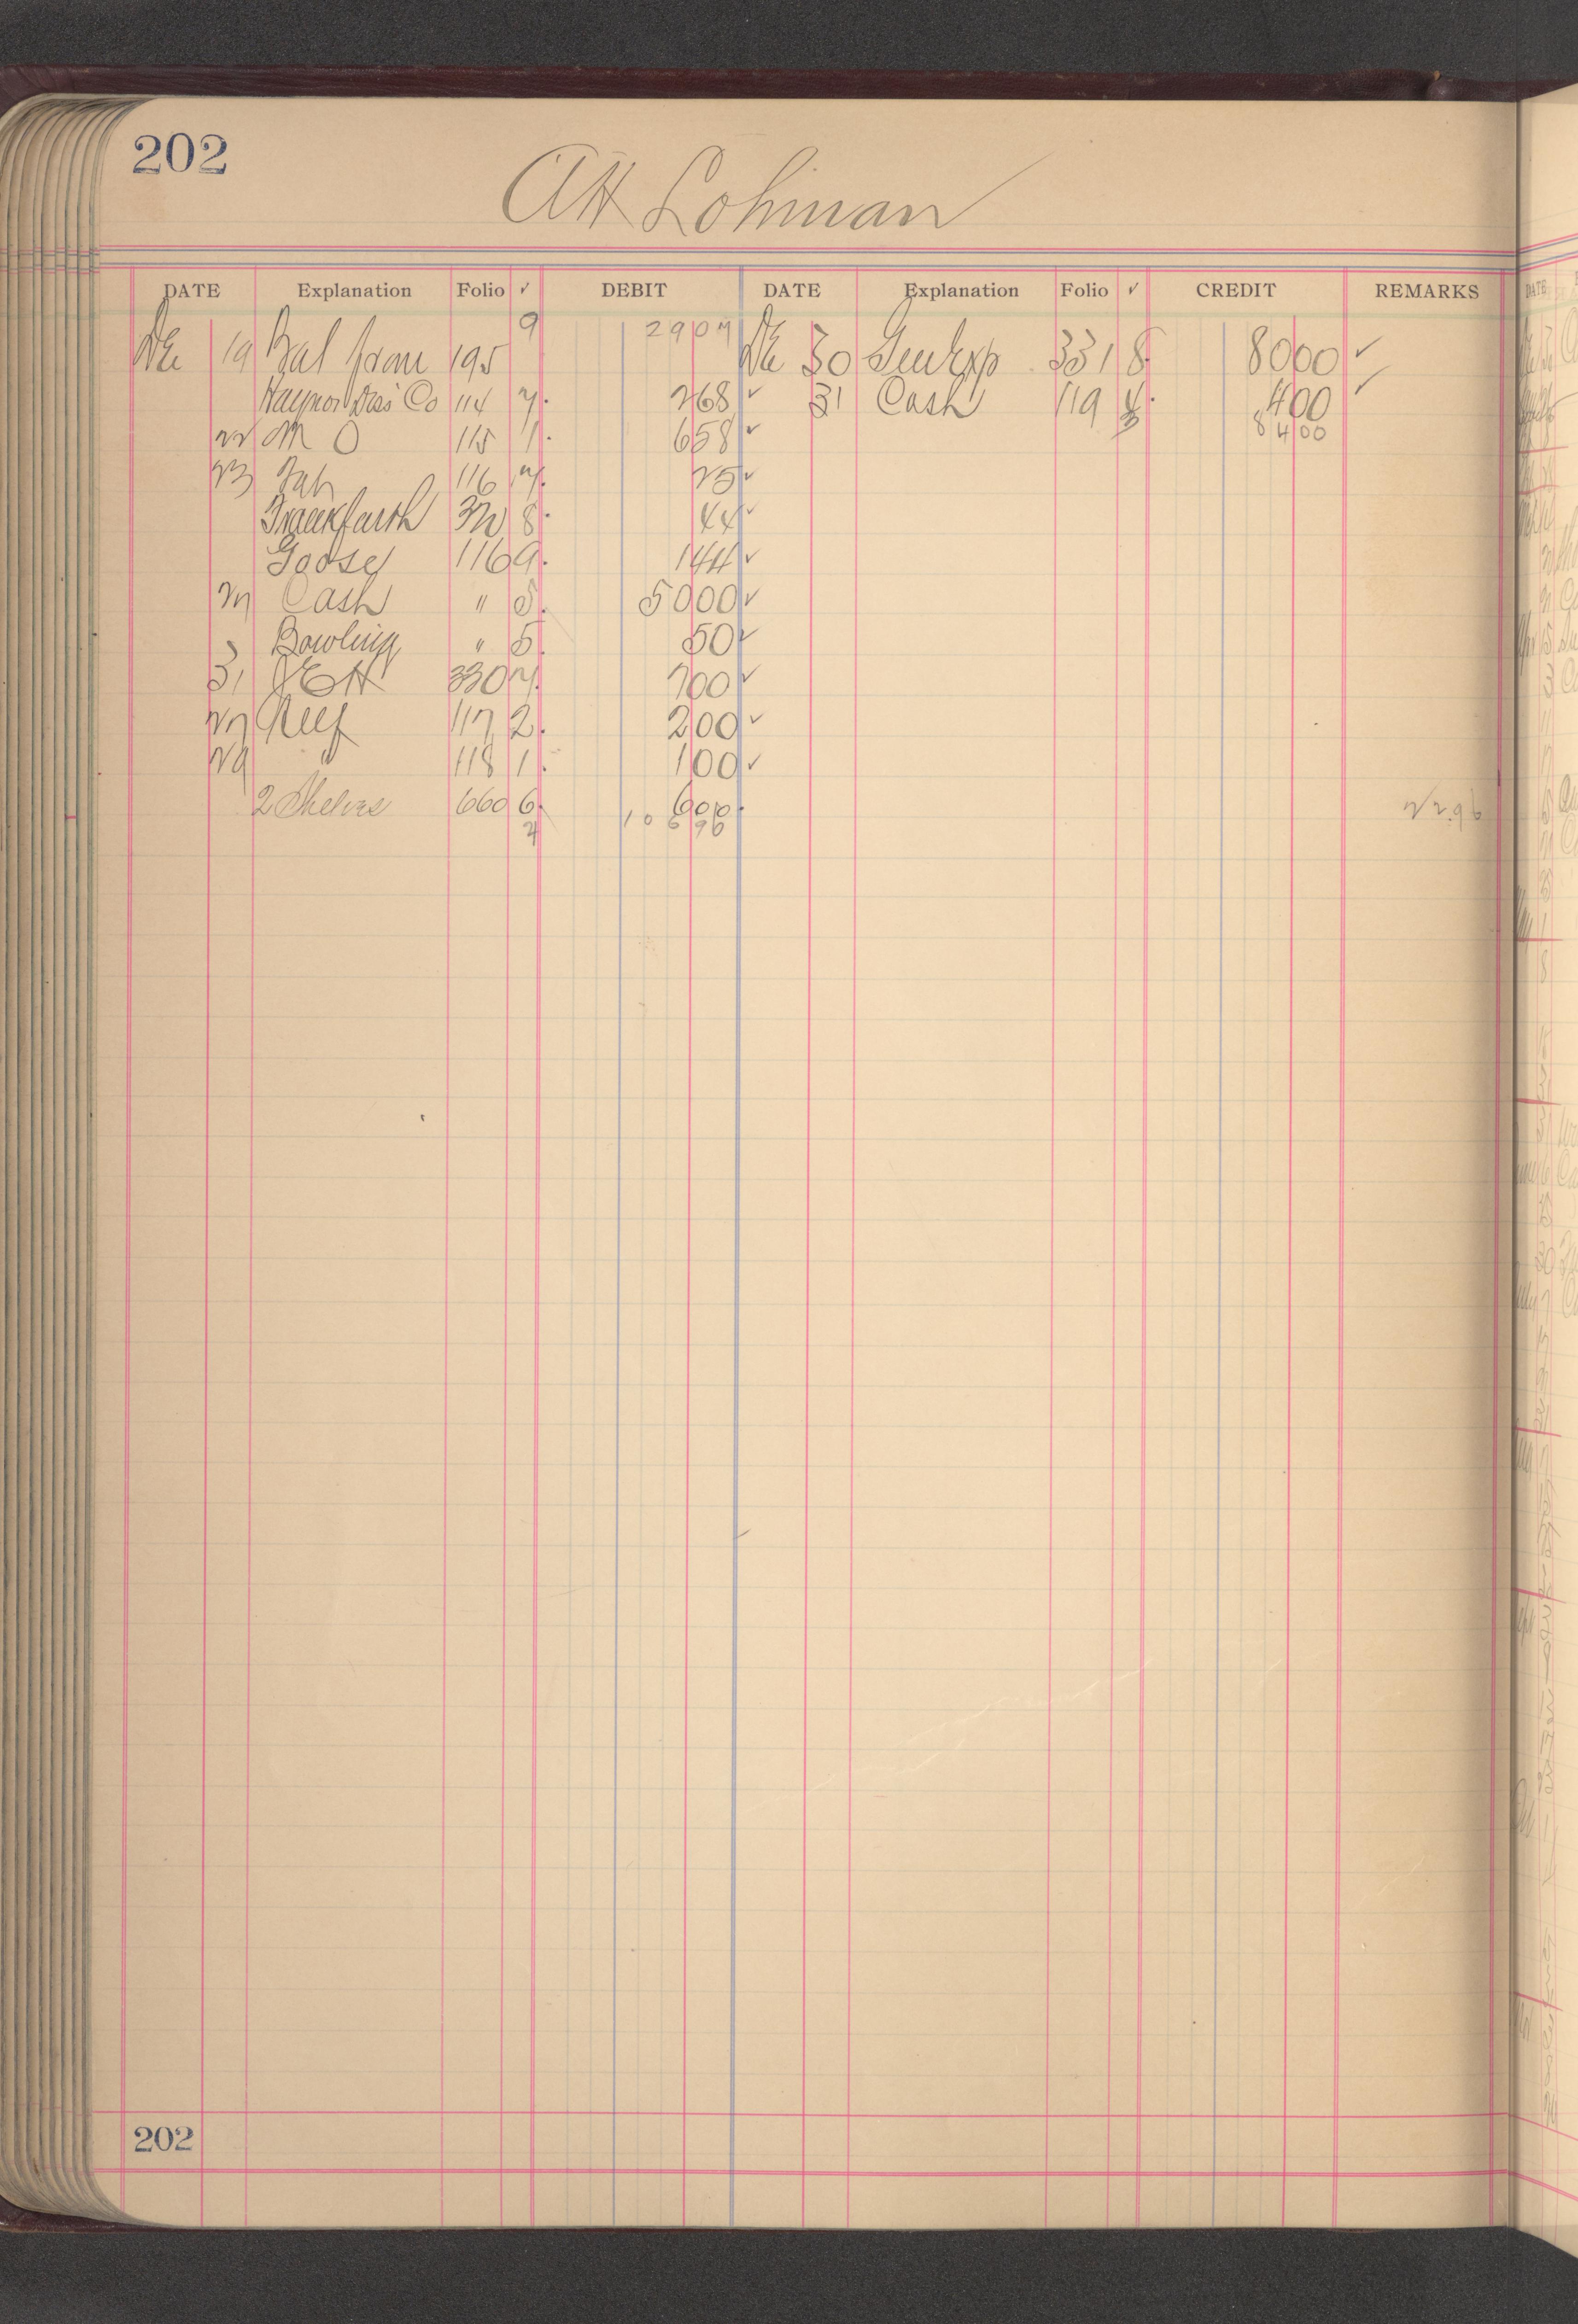 202
AH Lohman
DATE Explanation Folio ✓ DEBIT DATE Explanation Folio ✓ CREDIT REMARKS
19 Bal from 195 9 2907 30 331 8 8000 ✓
Haynor Dis Co 114 7 268 ✓ 31 Cash 119 400 ✓
22 M O 115 1 658 ✓ 8400
23 116 7 25 ✓
Frankfurth 320 8 44 ✓
Goosey 116 9 144 ✓
27 Cash " 5 5000 ✓
Bowling " 5 50 ✓
31 330 7 700 ✓
27 Reef 117 2 200 ✓
29 118 1 100 ✓
2 Shelves 660 6 600
4 10696 2296
202